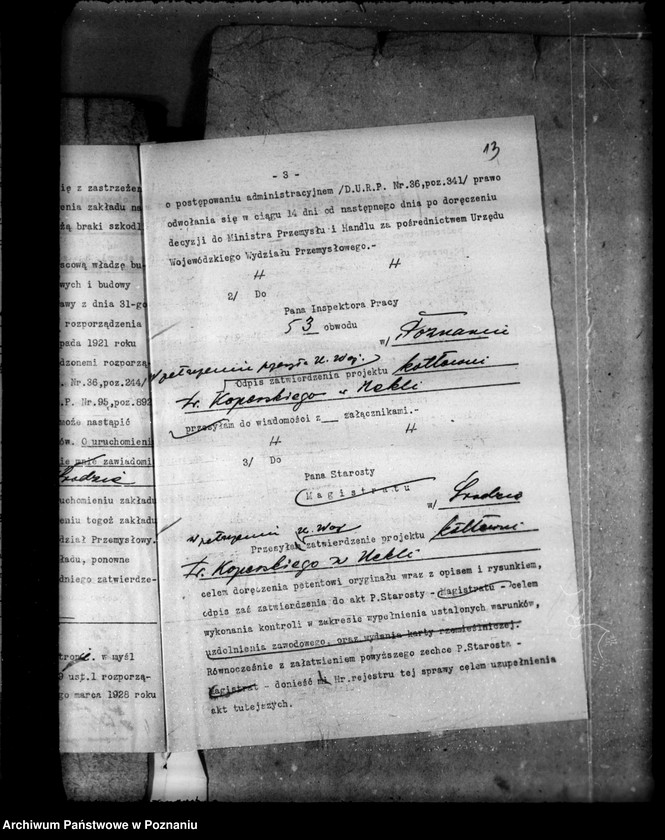 ię z zastrzeżen
enia zakładu na
żą braki szkodl
acową władzę bu-
wych i budowy
awy z dnia 31-go
rozporządzenia
pada 1921 roku
dzonemi rozporzą-
Nr.36,poz.244/
.P. Nr.95,poz.892
może nastąpić
ów. O uruchomieni
zawiadomi
Środzie
uchomieniu zakładu
eniu tegoż zakładu
dział Przemysłowy.
ładu, ponowne
dniego zatwierdze-
w myśl
9 ust.1 rozporzą-
go marca 1928 roku
13
- 3 -
o postępowaniu administracyjnem /D.U.R.P. Nr.36,poz.341/ prawo
odwołania się w ciągu 14 dni od następnego dnia po doręczeniu
decyzji do Ministra Przemysłu i Handlu za pośrednictwem Urzędu
Wojewódzkiego Wydziału Przemysłowego.-
2/ Do
Pana Inspektora Pracy
53 obwodu
w/ Poznaniu
W U. Woj.
Odpis zatwierdzenia projektu kotłowni
Koperskiego w Nekli
przesyłam do wiadomości z__ załącznikami.-
3/ Do
Pana Starosty
Magistratu
w/ Środzie
W U. Woj
Przesyłam zatwierdzenie projektu kotłowni
Koperskiego w Nekli
celem doręczenia petentowi oryginału wraz z opisem i rysunkiem,
odpis zaś zatwierdzenia do akt P.Starosty - Magistratu - celem
wykonania kontroli w zakresie wypełnienia ustalonych warunków,
uzdolnienia zawodowego, oraz wydania karty rzemieślniczej.
Równocześnie z załatwieniem powyższego zechce P.Starosta -
Magistrat - donieść Nr.rejestru tej sprawy celem uzupełnienia
akt tutejszych.
Archiwum Państwowe w Poznaniu